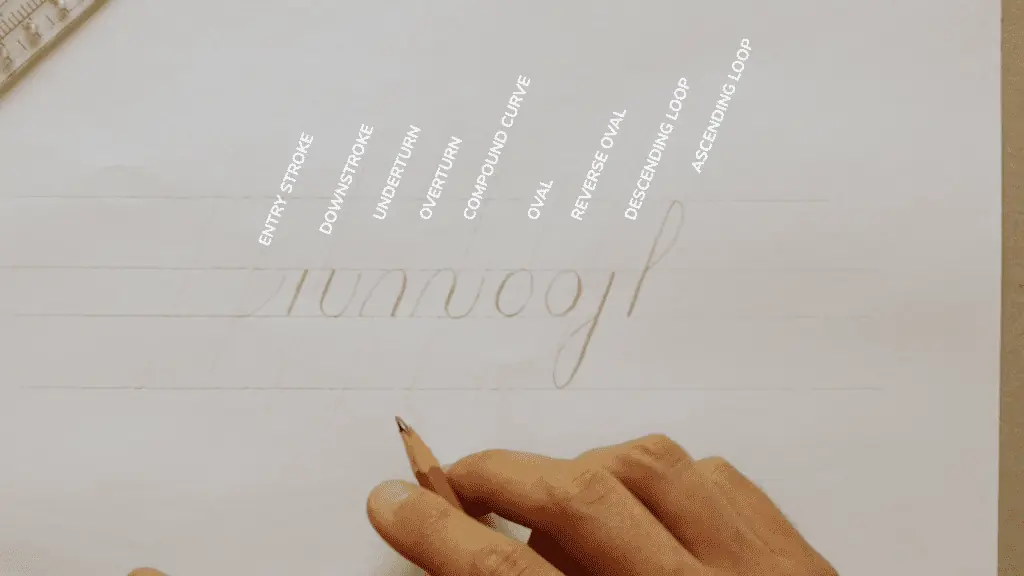 ENTRY STROKE
DOWNSTROKE
UNDERTURN
OVERTURN
COMPOUND CURVE
OVAL
REVERSE OVAL
DESCENDING LOOP
ASCENDING LOOP